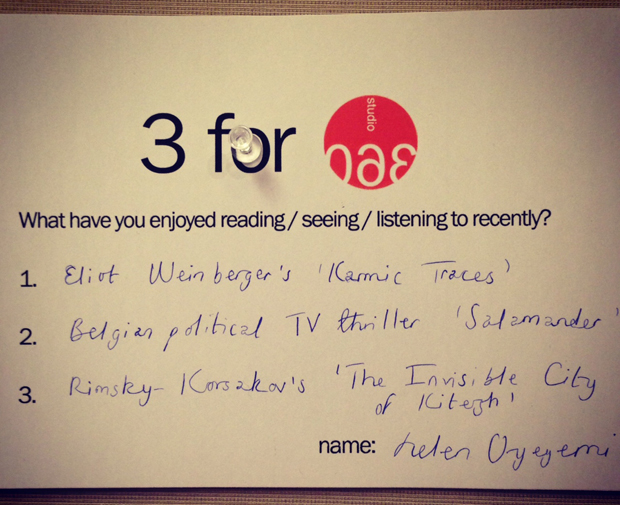 3 for
studio
360
What have you enjoyed reading / seeing / listening to recently?
1. Eliot Weinberger's 'Karmic Traces'
2. Belgian political TV thriller 'Salamander'
3. Rimsky-Korsakov's 'The Invisible City
of Kitezh'
name: Helen Oyeyemi